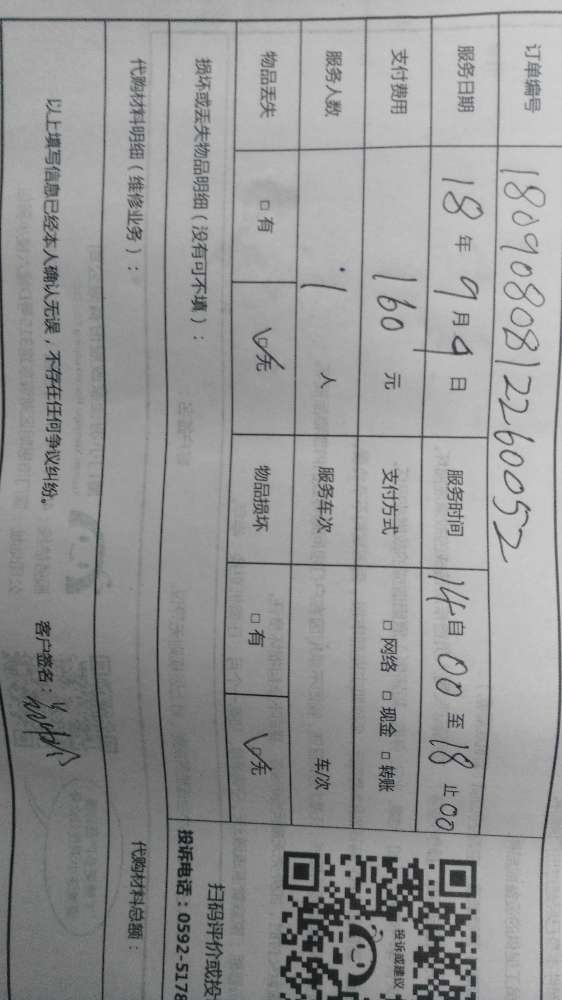 订单编号 1809080812260052
服务日期 18年9月9日 服务时间 14自00至18止00
支付费用 160元 支付方式 □网络 □现金 □转账
服务人数 1人 服务车次 车/次
物品丢失 □有 ☑无 物品损坏 □有 ☑无
损坏或丢失物品明细（没有可不填）：
代购材料明细（维修业务）： 代购材料总额：
以上填写信息已经本人确认无误，不存在任何争议纠纷。 客户签名：
投诉或建议
扫码评价或投
投诉电话：0592-5178